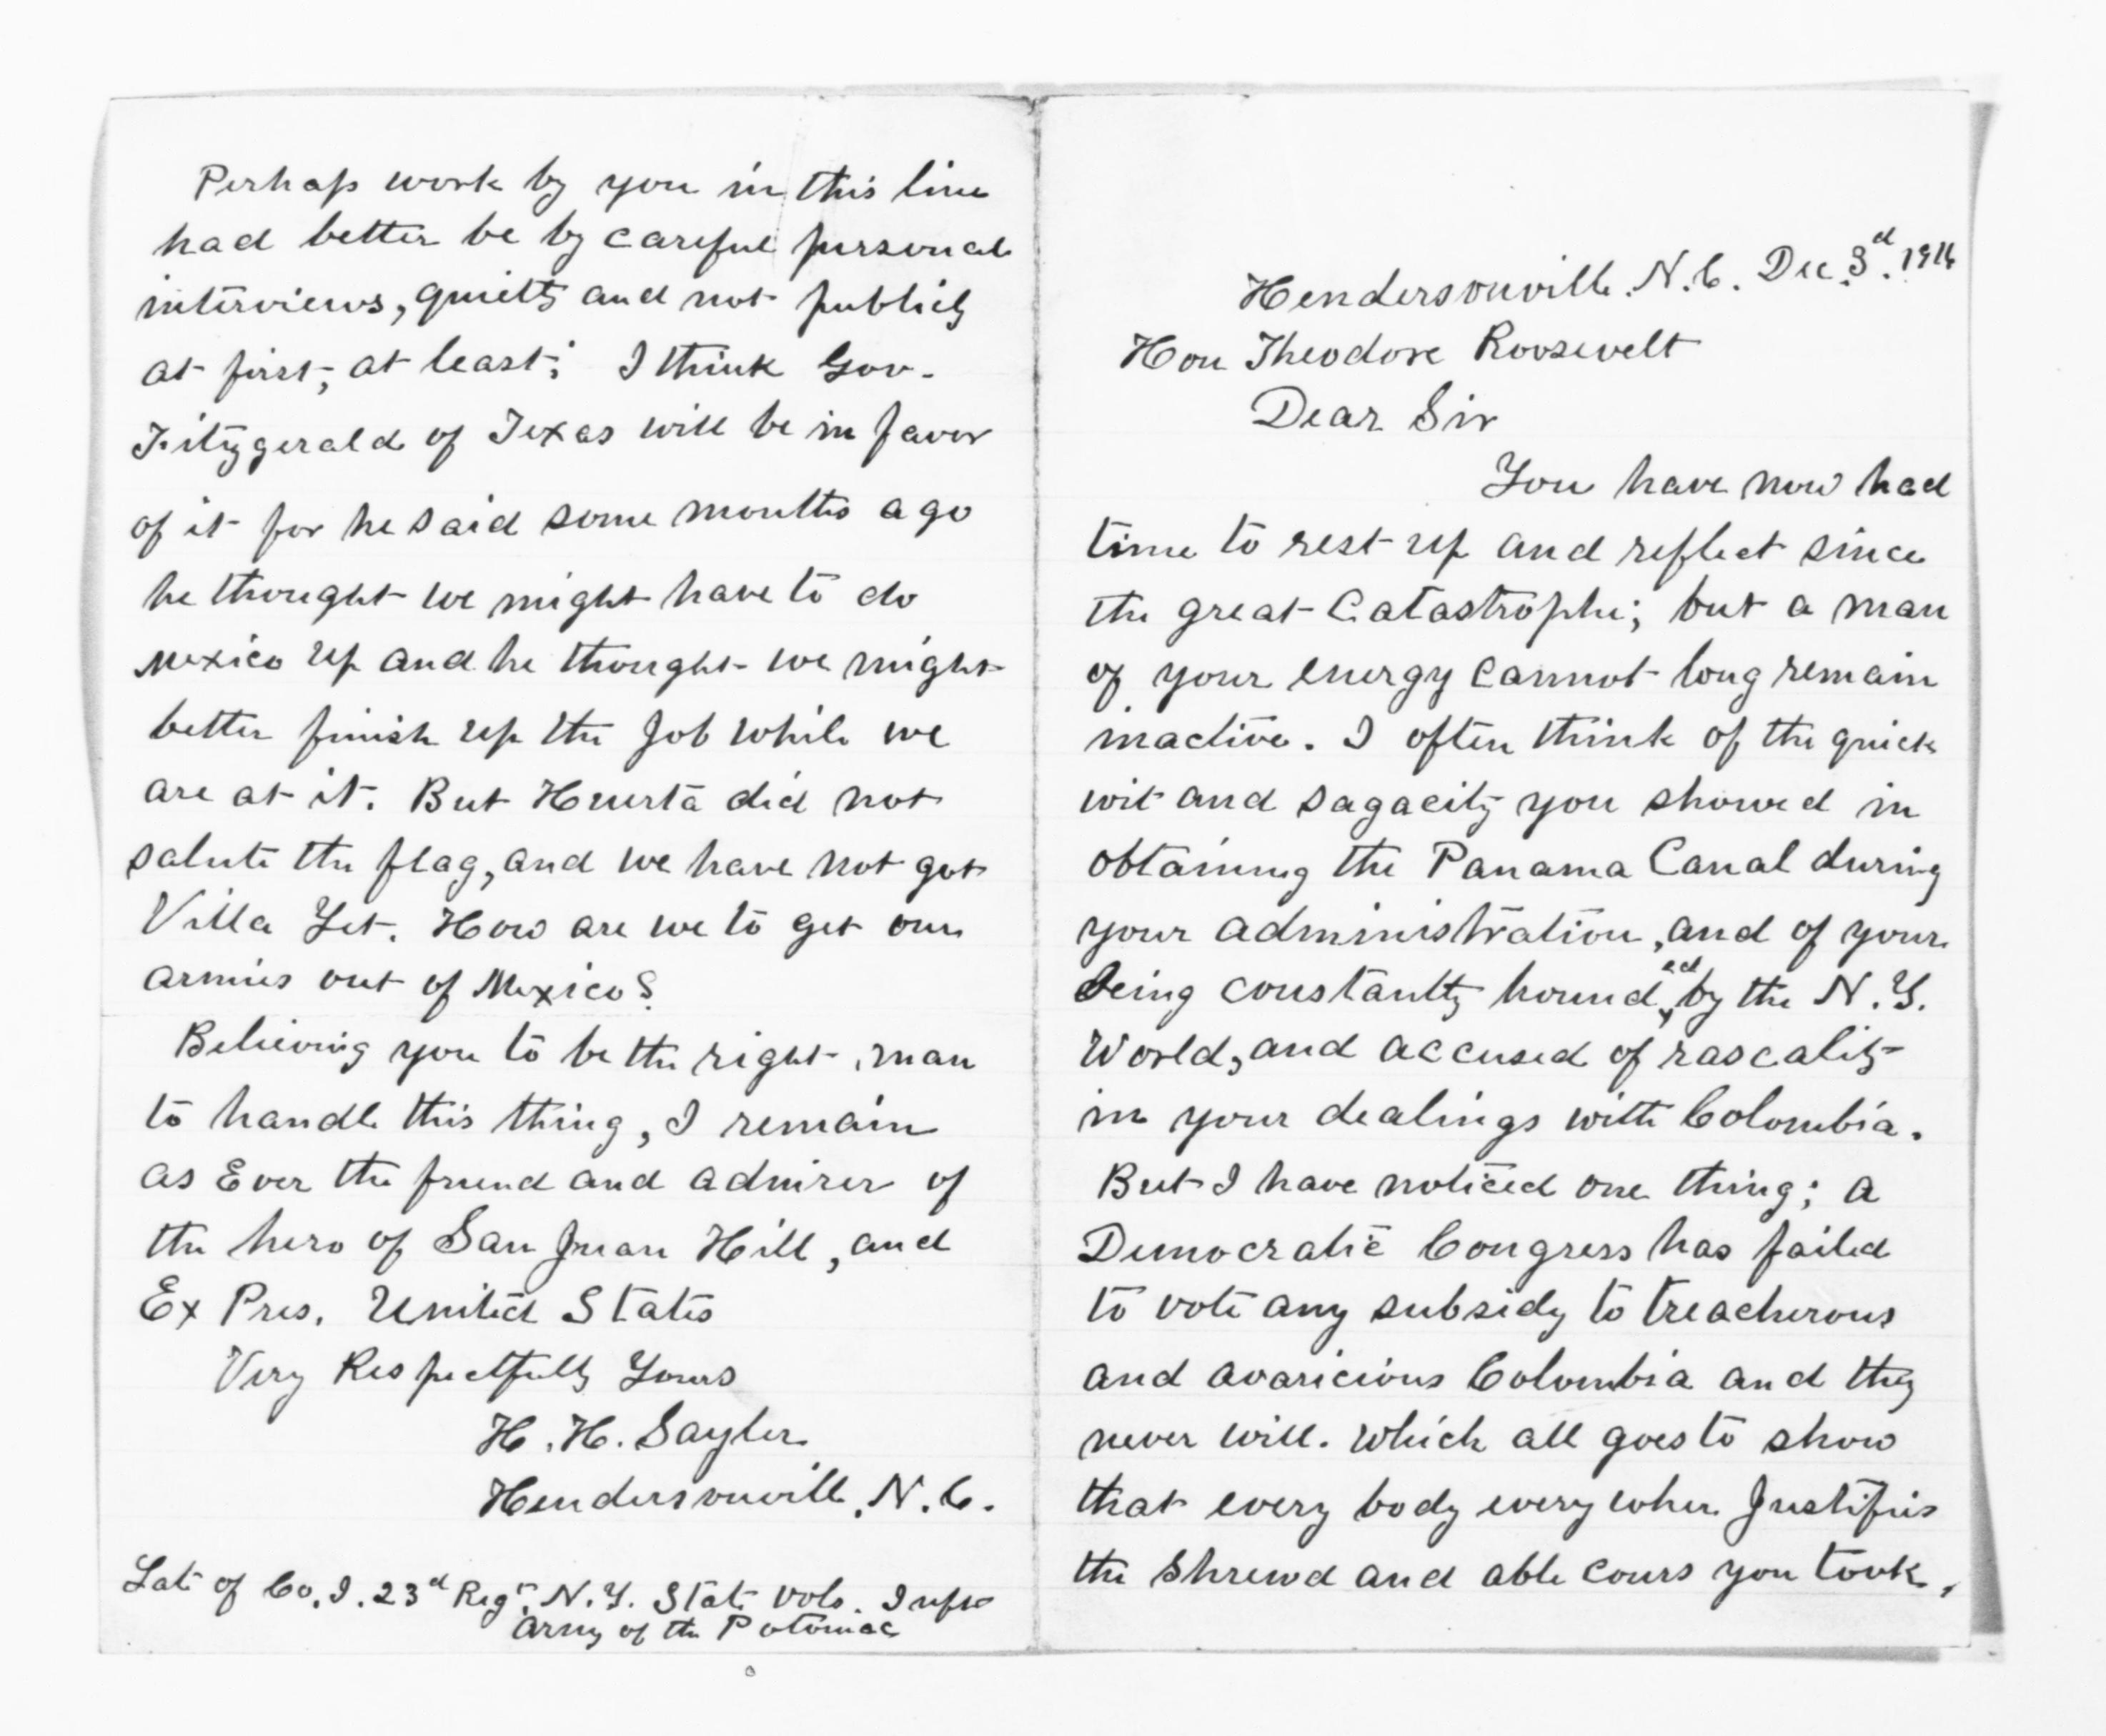 Perhaps work by you in this line
had better be by careful personal
interviews, quietly and not publicly
at first, at least; I think Gov.
Fitzgerald of Texas will be in favor
of it for he said some months ago
he thought we might have to do
Mexico up and he thought we might
better finish up the job while we
are at it. But Huerta did not
salute the flag, and we have not got
Villa Yet. How are we to get our
armies out of Mexico?
Believing you to be the right man
to handle this thing, I remain
as Ever the friend and admirer of
the hero of San Juan Hill, and
Ex Pres. United States
Very Respectfully Yours
H. H. Sayler
Hendersonville, N.C.
Late of Co. I. 23d Regt. N.Y. State Vols.
Army of the Potomac
Hendersonville. N.C. Dec. 3d. 1916
Hon Theodore Roosevelt
Dear Sir
You have now had
time to rest up and reflect since
the great Catastrophe; but a man
of your energy cannot long remain
inactive. I often think of the quick
wit and sagacity you showed in
obtaining the Panama Canal during
your administration, and of your
being constantly hounded by the N.Y.
World, and accused of rascality
in your dealings with Colombia.
But I have noticed one thing; a
Democratic Congress has failed
to vote any subsidy to treacherous
and avaricious Colombia and they
never will. Which all goes to show
that every body every where Justifies
the shrewd and able cours you took,